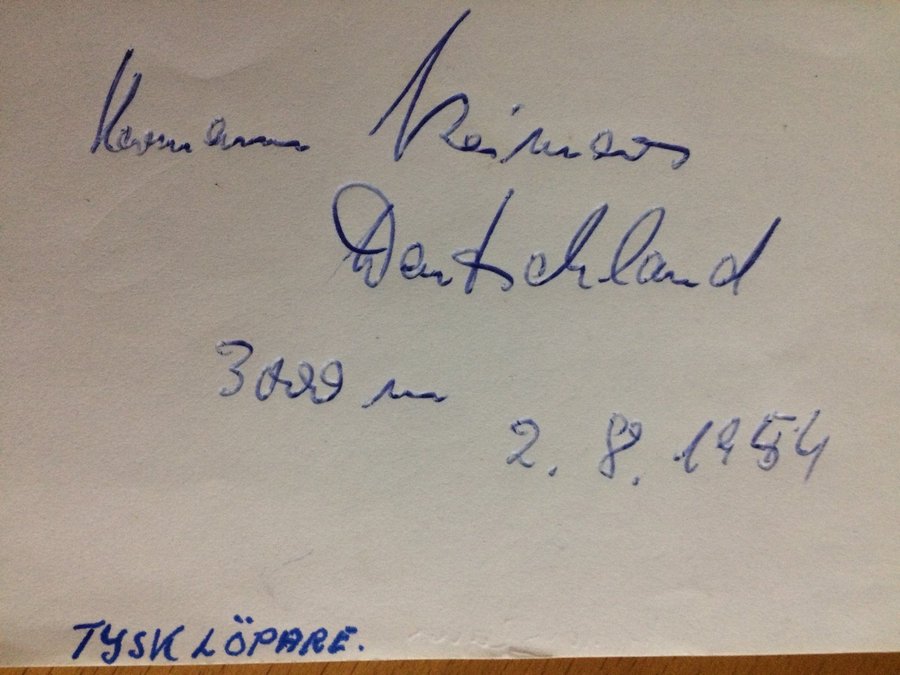 Hermann
Deutschland
3000 m
2. 8. 1954
TYSK LÖPARE.